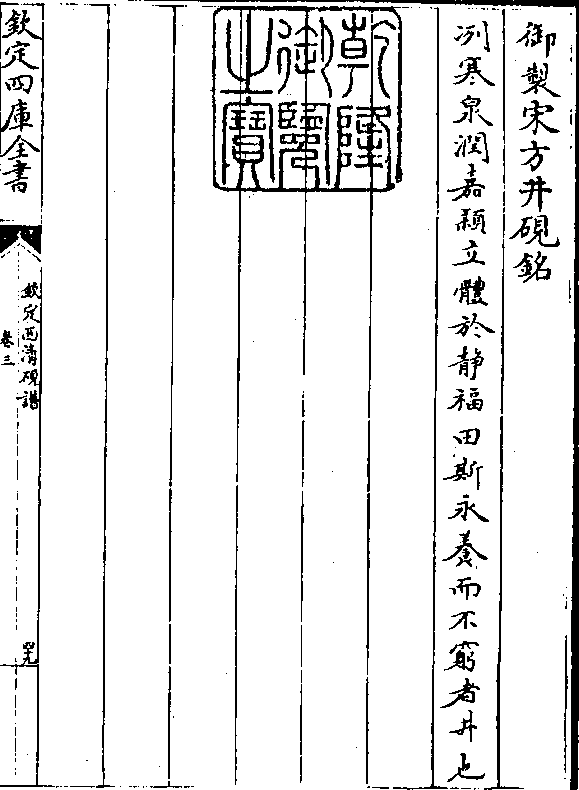 御製宋方井硯銘
冽寒泉潤嘉穎立體於靜福田斯永養而不窮者井也
乾隆御覽之寶
欽定四庫全書
欽定西清硯譜
卷三
罕九